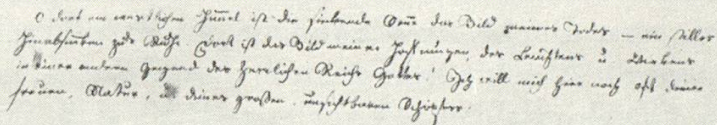 O dort am westlichen Himmel ist die sinkende Sonne das Bild meines Todes – ein stilles
Hinabsinken zur Ruhe. Dort ist das Bild meiner Hoffnungen, des Leuchtens u. Wirkens
in einer andern Gegend des herrlichen Reichs Gottes! Ich will mich hier noch oft deiner
freuen, Natur, u. deines großen, unsichtbaren Schöpfers.